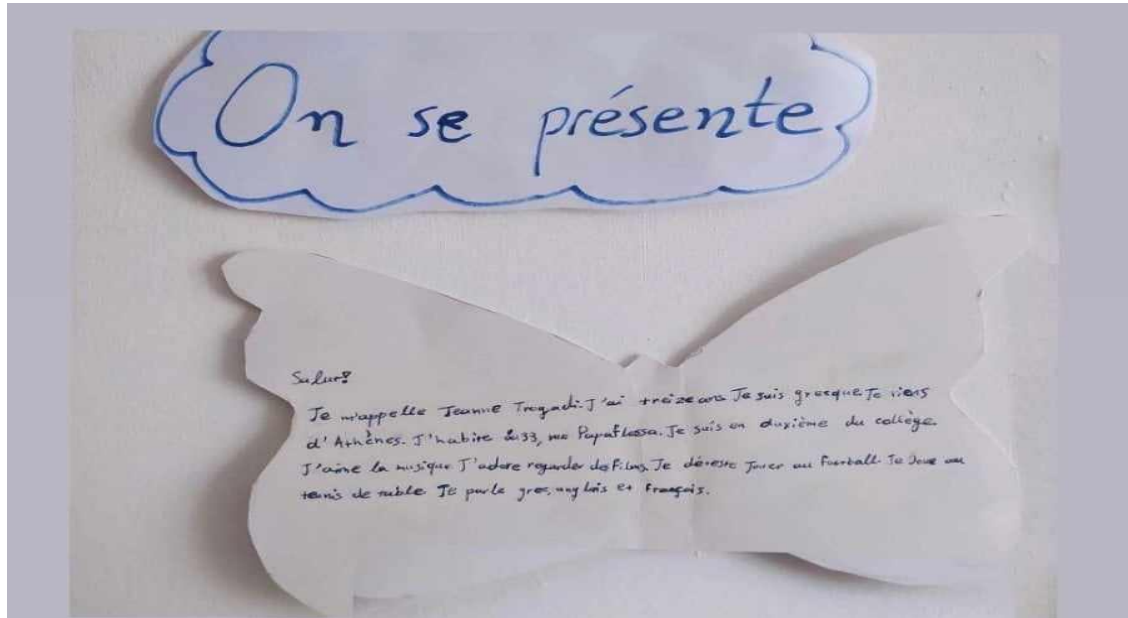 On se présente
Salut!
Je m'appelle Jeanne Trogadi. J'ai treize ans Je suis grecque Je viens
d'Athènes. J'habite au 33, rue Papaflessa. Je suis en duxième du collège.
J'aime la musique J'adore regarder des films. Je déteste jouer au football. Je Joue au
tennis de table Je parle grec, anglais et français.